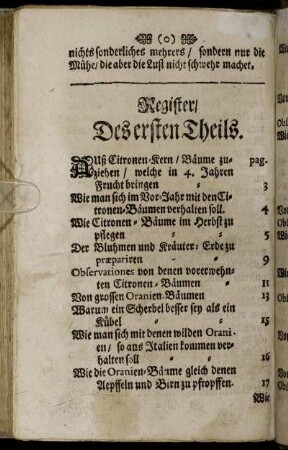 (o)
nichts sonderliches mehrers / sondern nur die
Mühe / die aber die Lust nicht schwehr machet.
Register /
Des ersten Theils.
Auß Citronen-Kern / Bäume zu- pag.
ziehen / welche in 4. Jahren
Frucht bringen 3
Wie man sich im Vor-Jahr mit den Ci-
tronen-Bäumen verhalten soll. 4
Wie Citronen-Bäume im Herbst zu
pflegen 5
Der Bluhmen und Kräuter-Erde zu
præpariren 9
Observationes von denen vorerwehn-
ten Citronen-Bäumen 11
Von grossen Oranien-Bäumen 13
Warum ein Scherbel besser sey als ein
Kübel 15
Wie man sich mit denen wilden Orani-
en / so aus Italien kommen ver-
halten soll 16
Wie die Oranien-Bäume gleich denen
Aepffeln und Birn zu pfropffen. 17
Wie